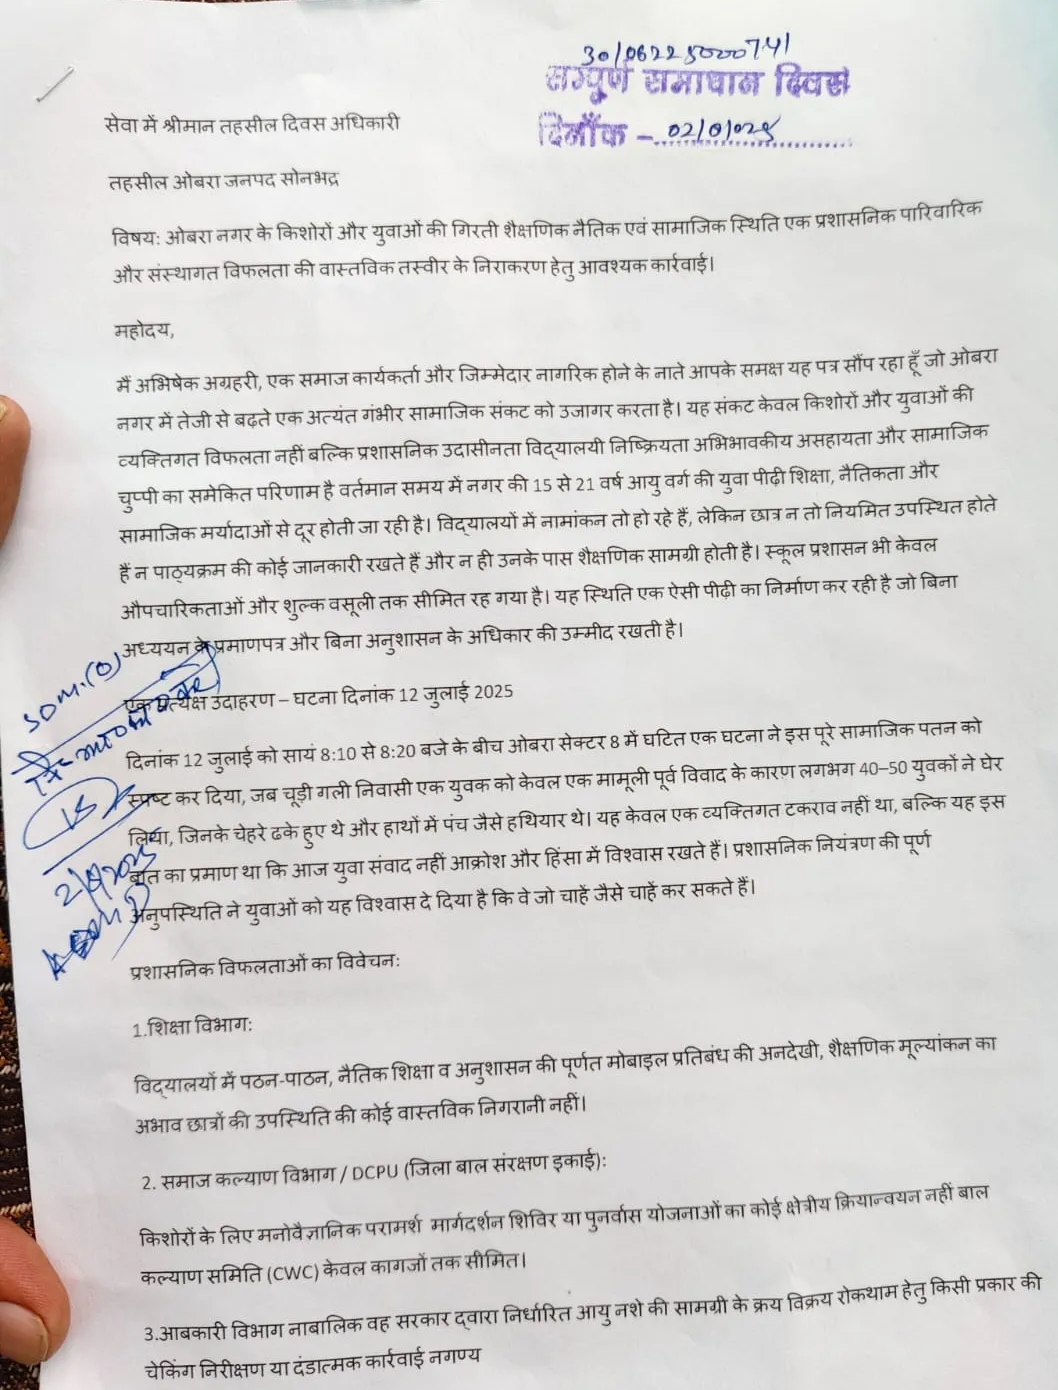 सम्पूर्ण समाधान दिवस
दिनाँक –
सेवा में श्रीमान तहसील दिवस अधिकारी
तहसील ओबरा जनपद सोनभद्र
विषय: ओबरा नगर के किशोरों और युवाओं की गिरती शैक्षणिक नैतिक एवं सामाजिक स्थिति एक प्रशासनिक पारिवारिक
और संस्थागत विफलता की वास्तविक तस्वीर के निराकरण हेतु आवश्यक कार्रवाई।
महोदय,
मैं अभिषेक अग्रहरी, एक समाज कार्यकर्ता और जिम्मेदार नागरिक होने के नाते आपके समक्ष यह पत्र सौंप रहा हूँ जो ओबरा
नगर में तेजी से बढ़ते एक अत्यंत गंभीर सामाजिक संकट को उजागर करता है। यह संकट केवल किशोरों और युवाओं की
व्यक्तिगत विफलता नहीं बल्कि प्रशासनिक उदासीनता विद्यालयी निष्क्रियता अभिभावकीय असहायता और सामाजिक
चुप्पी का समेकित परिणाम है वर्तमान समय में नगर की 15 से 21 वर्ष आयु वर्ग की युवा पीढ़ी शिक्षा, नैतिकता और
सामाजिक मर्यादाओं से दूर होती जा रही है। विद्यालयों में नामांकन तो हो रहे हैं, लेकिन छात्र न तो नियमित उपस्थित होते
हैं न पाठ्यक्रम की कोई जानकारी रखते हैं और न ही उनके पास शैक्षणिक सामग्री होती है। स्कूल प्रशासन भी केवल
औपचारिकताओं और शुल्क वसूली तक सीमित रह गया है। यह स्थिति एक ऐसी पीढ़ी का निर्माण कर रही है जो बिना
अध्ययन के प्रमाणपत्र और बिना अनुशासन के अधिकार की उम्मीद रखती है।
एक प्रत्यक्ष उदाहरण – घटना दिनांक 12 जुलाई 2025
दिनांक 12 जुलाई को सायं 8:10 से 8:20 बजे के बीच ओबरा सेक्टर 8 में घटित एक घटना ने इस पूरे सामाजिक पतन को
स्पष्ट कर दिया, जब चूड़ी गली निवासी एक युवक को केवल एक मामूली पूर्व विवाद के कारण लगभग 40–50 युवकों ने घेर
लिया, जिनके चेहरे ढके हुए थे और हाथों में पंच जैसे हथियार थे। यह केवल एक व्यक्तिगत टकराव नहीं था, बल्कि यह इस
बात का प्रमाण था कि आज युवा संवाद नहीं आक्रोश और हिंसा में विश्वास रखते हैं। प्रशासनिक नियंत्रण की पूर्ण
अनुपस्थिति ने युवाओं को यह विश्वास दे दिया है कि वे जो चाहें जैसे चाहें कर सकते हैं।
प्रशासनिक विफलताओं का विवेचन:
1.शिक्षा विभाग:
विद्यालयों में पठन-पाठन, नैतिक शिक्षा व अनुशासन की पूर्णत मोबाइल प्रतिबंध की अनदेखी, शैक्षणिक मूल्यांकन का
अभाव छात्रों की उपस्थिति की कोई वास्तविक निगरानी नहीं।
2. समाज कल्याण विभाग / DCPU (जिला बाल संरक्षण इकाई):
किशोरों के लिए मनोवैज्ञानिक परामर्श मार्गदर्शन शिविर या पुनर्वास योजनाओं का कोई क्षेत्रीय क्रियान्वयन नहीं बाल
कल्याण समिति (CWC) केवल कागजों तक सीमित।
3.आबकारी विभाग नाबालिक वह सरकार द्वारा निर्धारित आयु नशे की सामग्री के क्रय विक्रय रोकथाम हेतु किसी प्रकार की
चेकिंग निरीक्षण या दंडात्मक कार्रवाई नगण्य